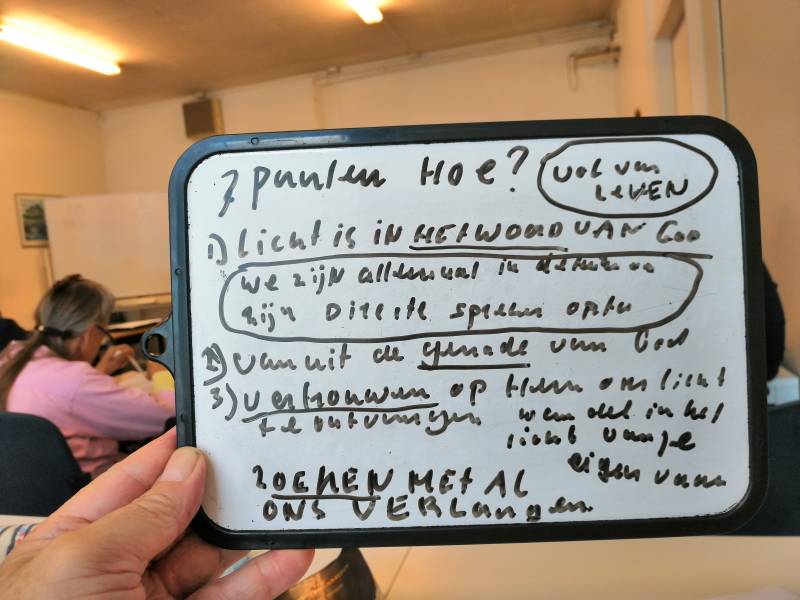 3 punten Hoe?
vol van
LEVEN
1) Licht is in HET WOORD VAN God
we zijn allemaal in de
zijn Directe spreken op te
2) vanuit de genade van God
3) vertrouwen op Hem om licht
te ontvangen wandel in het
licht van je
eigen
ZOEKEN MET AL
ONS VERLangen